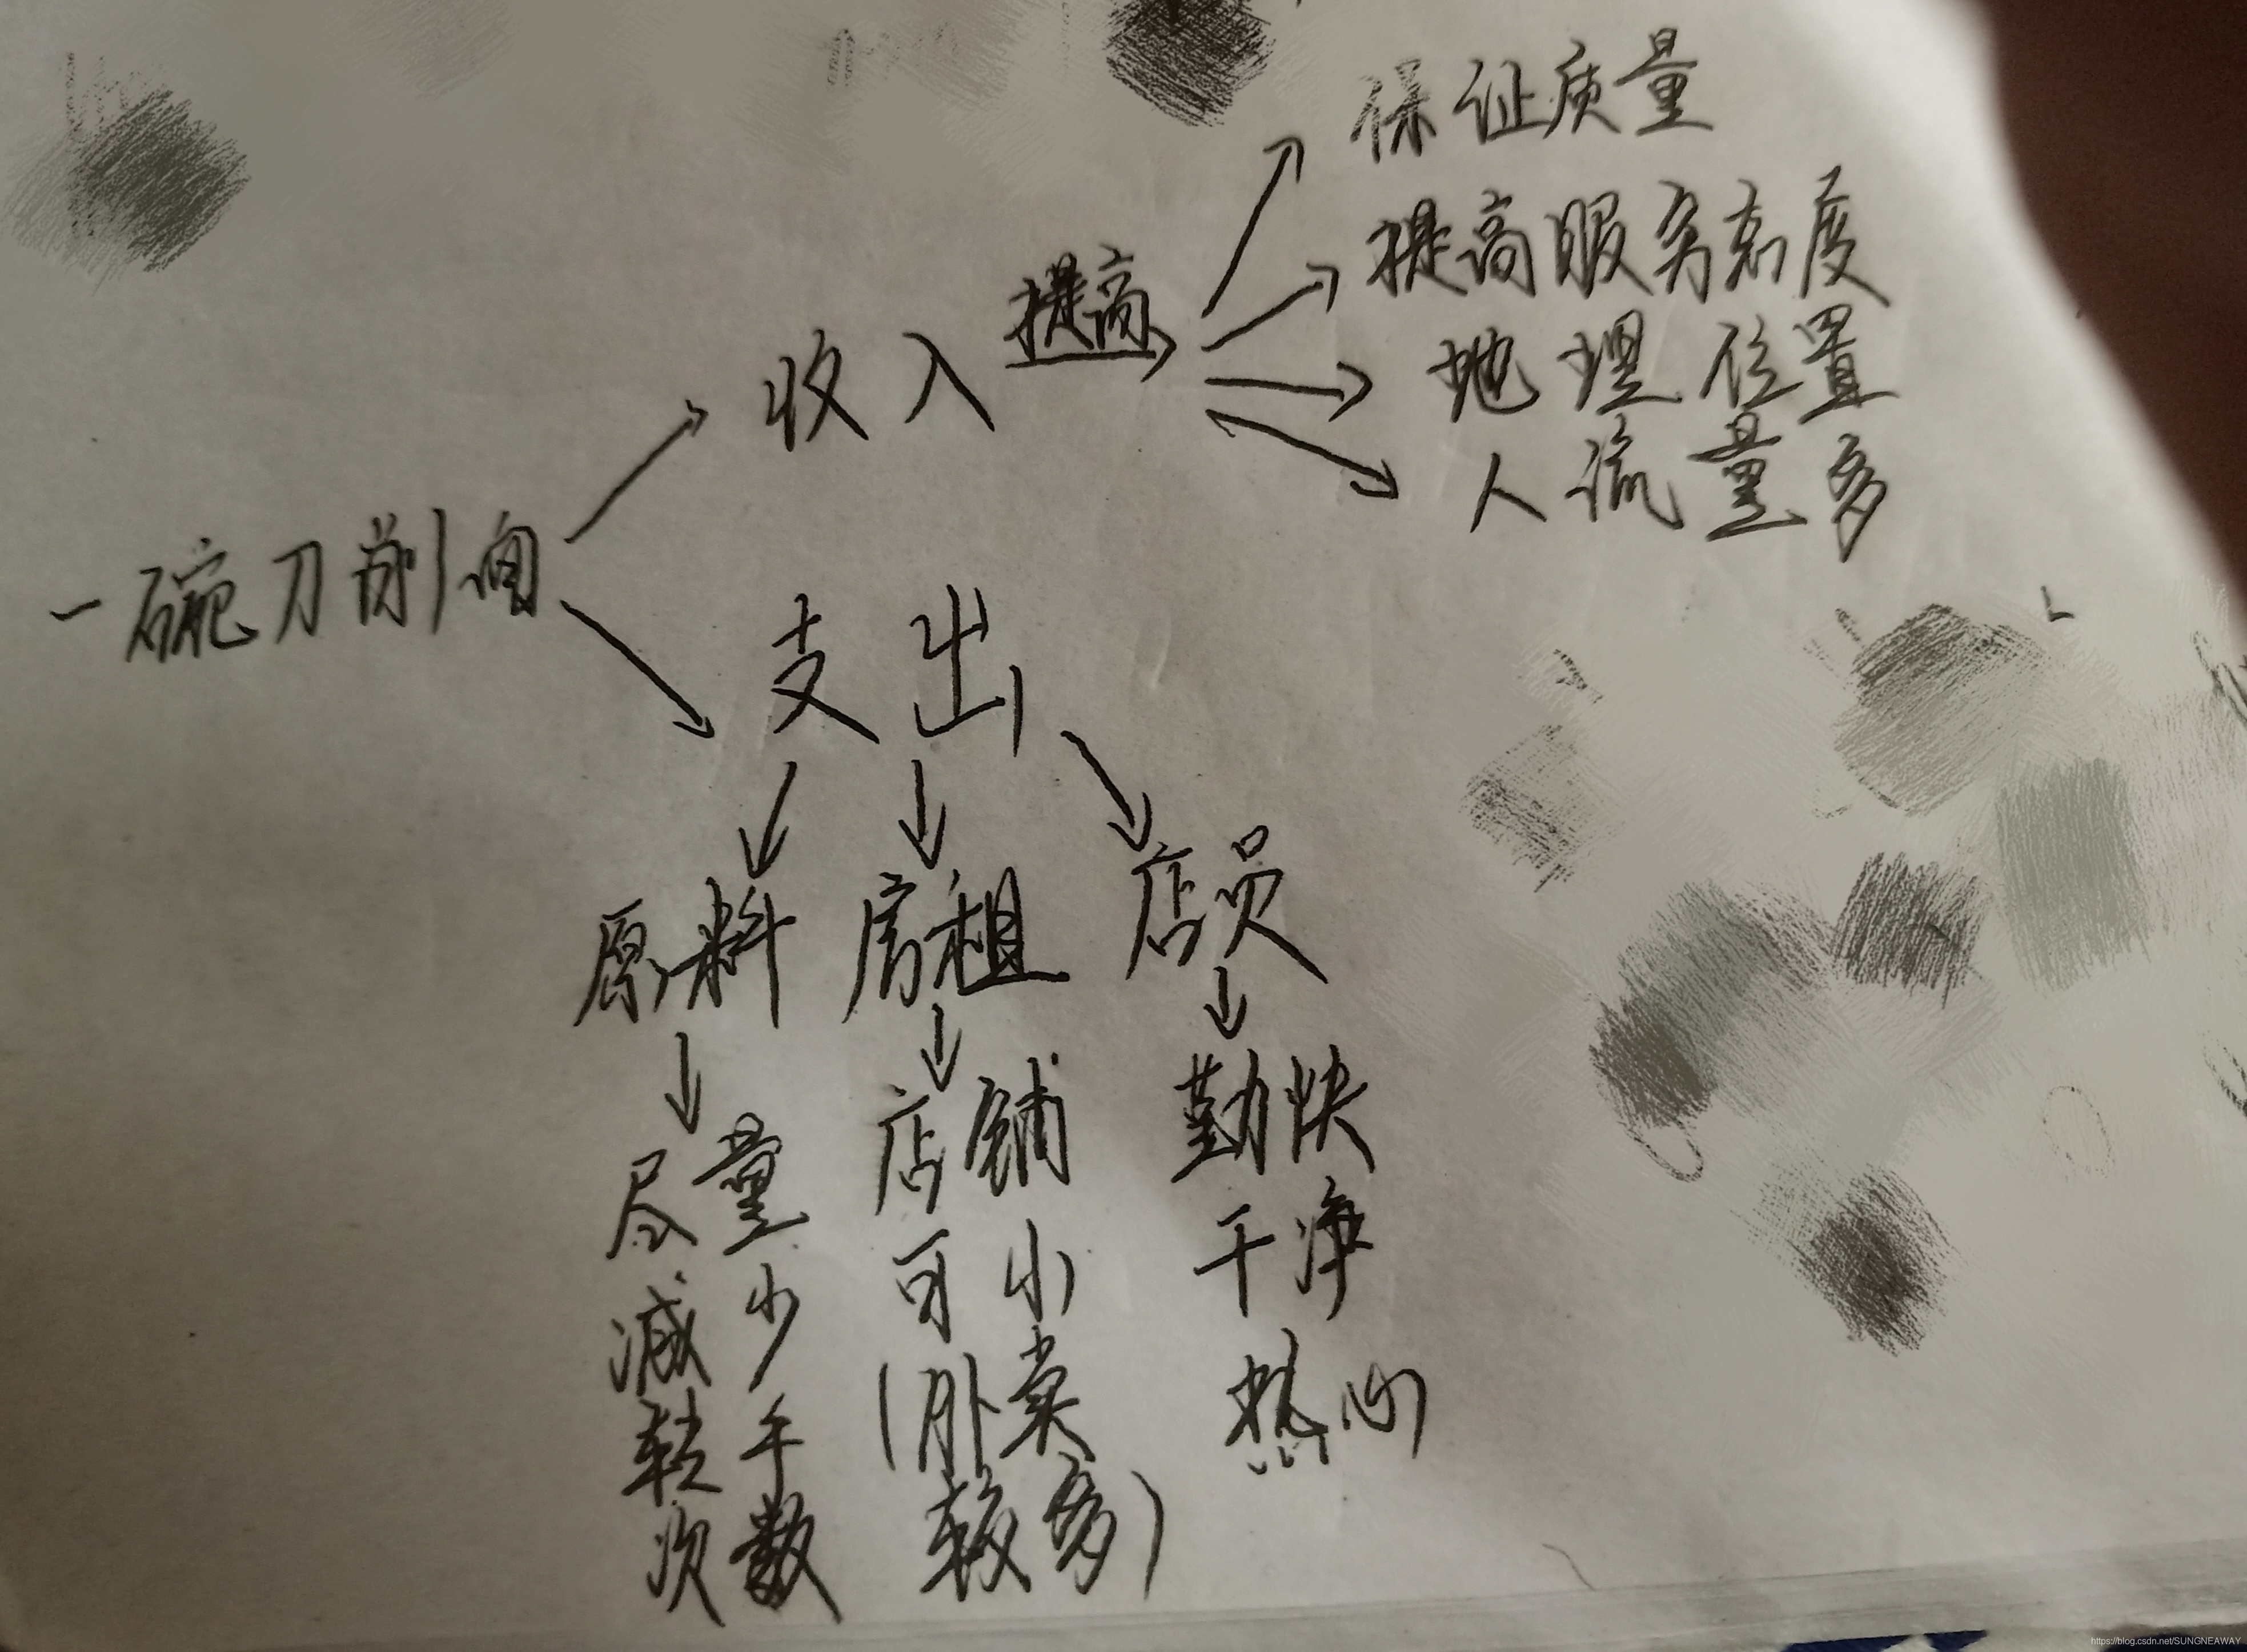 保证质量
提高服务态度
提高
地理位置
收入
人流量多
一碗刀削面
支出
原料
房租
店员
尽量
减少
转手
次数
店铺
可小
(外卖
较多)
勤快
干净
热心
https://blog.csdn.net/SUNGNEAWAY